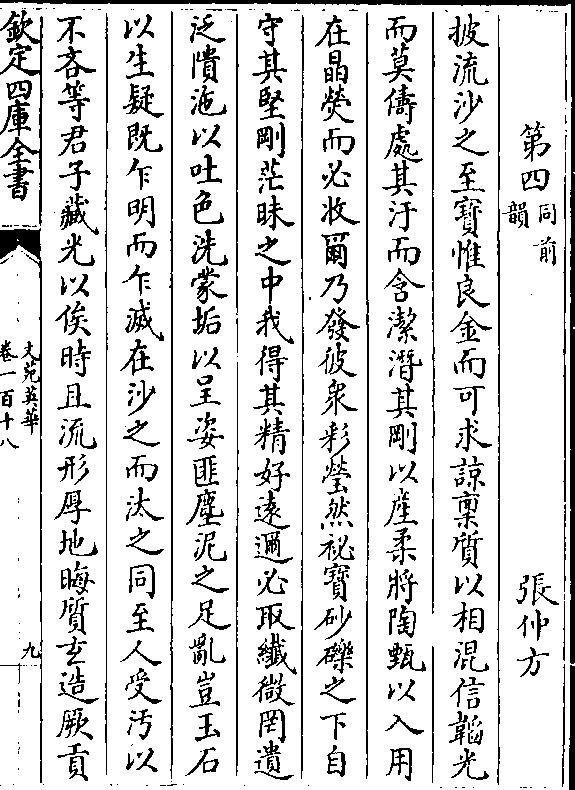 第四 同前韻 張仲方
披流沙之至寶惟良金而可求諒稟質以相混信韜光
而莫儔處其汙而含潔潛其剛以産柔將陶甄以入用
在晶熒而必收爾乃發彼衆彩瑩然祕寶砂礫之下自
守其堅剛茫昧之中我得其精好遠邇必取纖微罔遺
泛隤沲以吐色洗蒙垢以呈姿匪塵泥之足亂豈玉石
以生疑既乍明而乍滅在沙之而汰之同至人受汚以
不吝等君子藏光以俟時且流形厚地晦質玄造厥貢
欽定四庫全書
文苑英華
卷一百十八
九